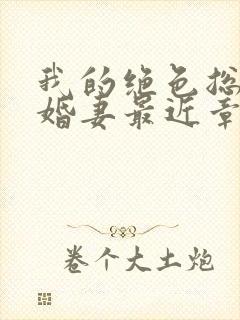 我的绝色总
婚妻最近章
卷个大土炮